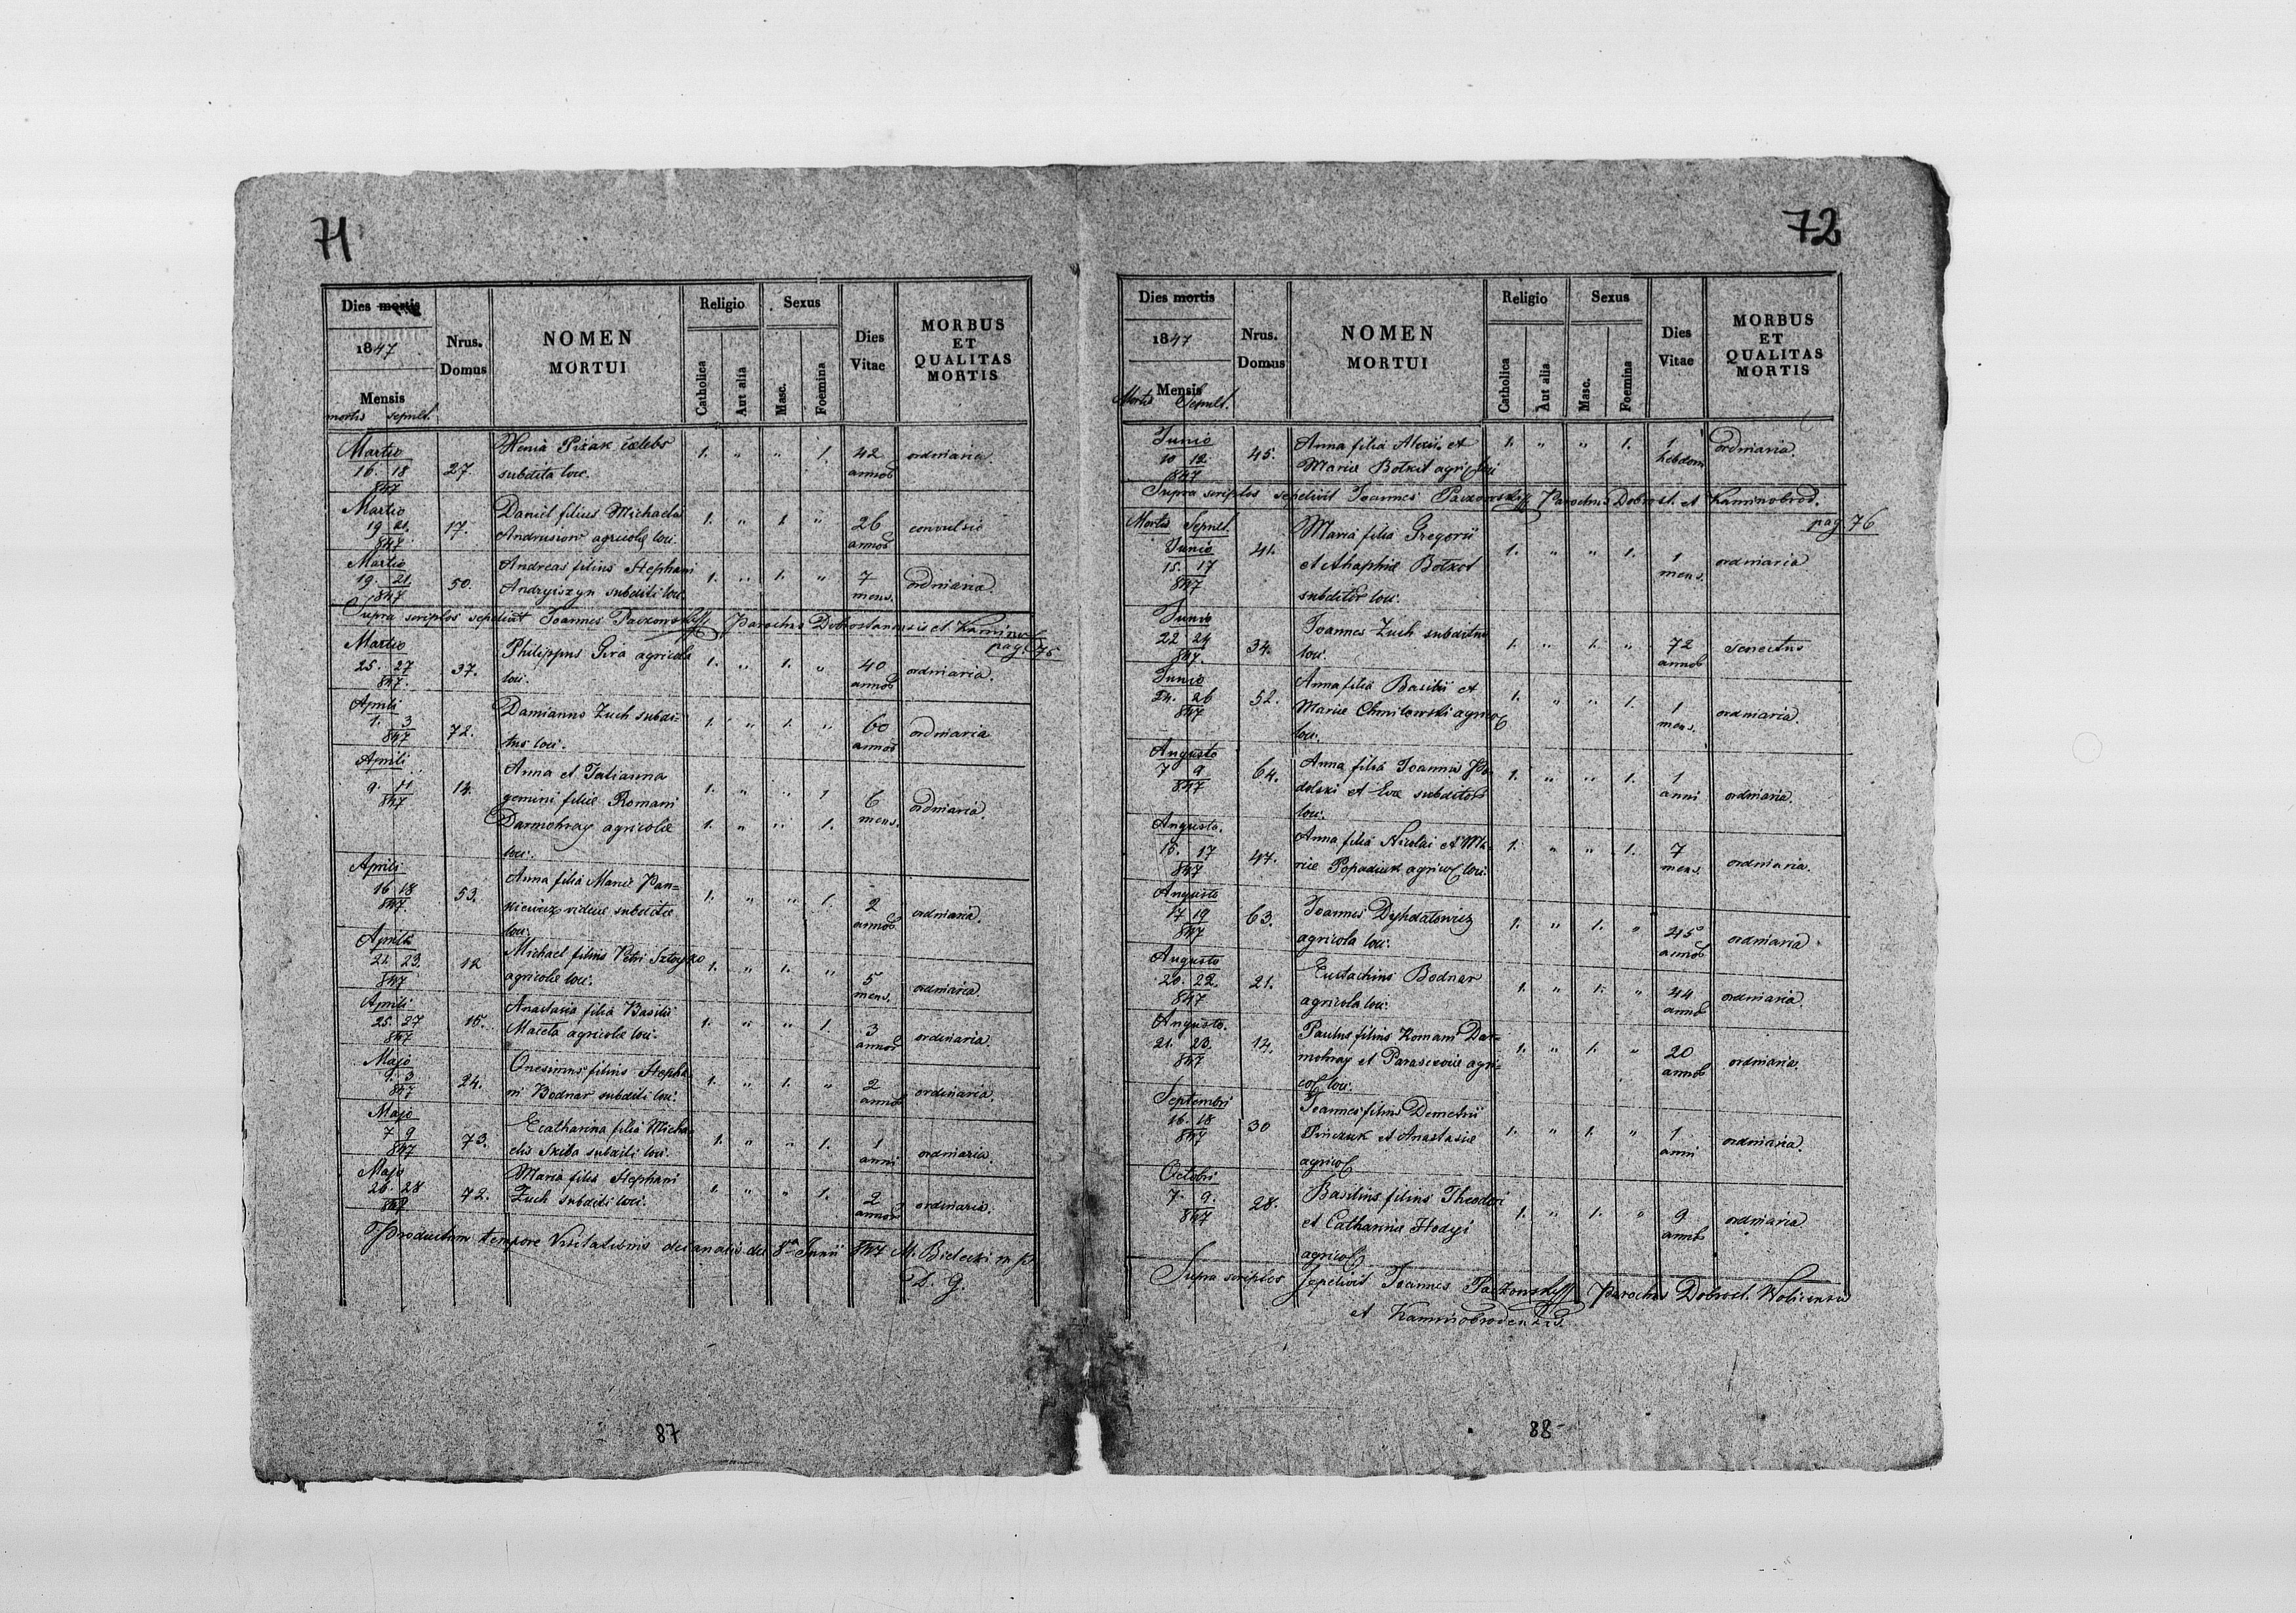 71
Dies mortis
1847
Mensis
mortis sepult.
Nrus. Domus
NOMEN MORTUI
Religio
Catholica
Aut alia
Sexus
Masc.
Foemina
Dies Vitae
MORBUS ET QUALITAS MORTIS
Martio 27. Henia Pizak caelebs 1. " " 1. 42 ordinaria.
16. 18 subdita loc. annor
847
Martio 17. Daniel filius Michaelis 1. " 1. " 26 convulsio
19 21. Andrusiow agricolae loci. annor
847
Martio 50. Andreas filius Stephani 1. " 1. " 7 ordinaria.
19. 21 Andryiszyn subditi loci. mens.
847
Supra scriptos sepelivit Joannes Parochus Dobrostanensis et
pag. 75
Martio 37. Philippus agricola 1. " 1. " 40 ordinaria.
25. 27 loci. annor
847.
Aprili 72. Damianus Zuch subdi- 1. " 1. " 60 ordinaria
1. 3 tus loci. annor
847
Aprili 14. Anna et Tatianna 1. " " 1 6 ordinaria.
9. 11 gemini filiae Romani mens.
847 Darmohray agricolae 1. " " 1.
loci.
Aprili 53. Anna filia Mariae Pan= 1. " " 1. 2 ordinaria.
16 18 kiewicz viduae subditae annor
847. loci.
Aprili 12 Michael filius Petri 1. " 1. " 5 ordinaria.
21. 23. agricolae loci. mens.
847
Aprili 15. Anastasia filia Basilii 1. " " 1. 3 ordinaria.
25. 27 Maceta agricolae loci. annor
847
Majo 24. Onesimus filius Stepha- 1. " 1. " 2 ordinaria.
3. ni Bodnar subditi loci. annor
847
Majo 73. Ecatharina filia Micha- 1. " " 1. 1 ordinaria.
7 9 elis Skiba subditi loci. anni
847
Majo 72. Maria filia Stephani 1. " " 1. 2 ordinaria.
26. 28 Zuch subditi loci. annor
847
Productum tempore Visitationis decanalis die 8va Junii 847 M. Bielecki mp
D. G.
87
72
Dies mortis
1847
Mensis
Mortis Sepult.
Nrus. Domus
NOMEN MORTUI
Religio
Catholica
Aut alia
Sexus
Masc.
Foemina
Dies Vitae
MORBUS ET QUALITAS MORTIS
Junio 45. Anna filia Alexii et 1. " " 1. 1 ordinaria.
10 12 Mariae agricol loci hebdom
847
Supra scriptos sepelivit Joannes Parochus Dobrost. et Kaminobrod.
pag 76
Mortis Sepult.
Junio 41. Maria filia Gregorii 1. " " 1. 1 ordinaria
15. 17 et Ahaphiae mens.
847 subditor loci.
Junio 34. Joannes Zuch subditus 1. " 1. " 72 senectus
22 24 loci. annor
847.
Junio 52. Anna filia Basilii et 1. " " 1. 1 ordinaria.
24. 26 Mariae Chmilowski agricol mens.
847 loci.
Augusto 64. Anna filia Joannis Po- 1. " " 1. 1 ordinaria.
7 9 dolski et Evae subditor anni
847 loci.
Augusto. 47. Anna filia Nicolai et Ma- 1. " " 1. 7 ordinaria.
15. 17 riae Popadiuk agricol loci. mens.
847
Augusto 63. Joannes Dyhdalowicz 1. " 1. " 45 ordinaria
17 19 agricola loci. annor
847
Augusto 21. Eustachius Bodnar 1. " 1. " 44 ordinaria.
20. 22. agricola loci. annor
847
Augusto. 14. Paulus filius Romani Dar- 1. " 1. " 20 ordinaria.
21. 23. mohray et Parascewiae agri- annor
847 col loci.
Septembri 30 Joannes filius Demetrii 1. " 1. " 1 ordinaria.
16. 18 Pinczuk et Anastasiae anni
847 agricol
Octobri 28. Basilius filius Theodori 1. " 1. " 9 ordinaria
7. 9. et Catharinae Hodyi annor
847 agricol
Supra scriptos sepelivit Joannes Parochus Dobrost. Wolicensis
et Kaminobrodensis.
88